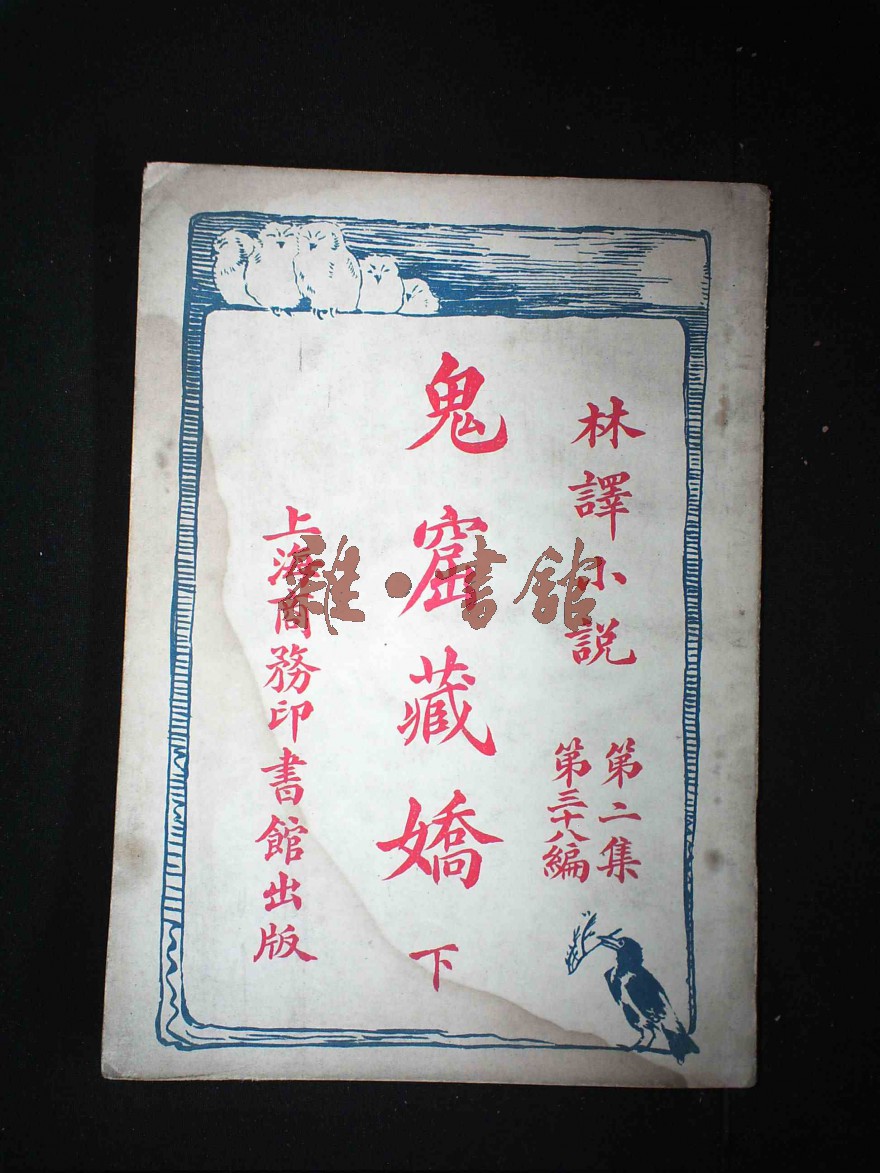 林譯小説
第二集
第三十八編
鬼窟藏嬌 下
上海商務印書館出版
雜·書館